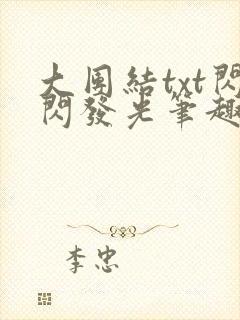 大團結txt閃
閃發光筆趣
李忠